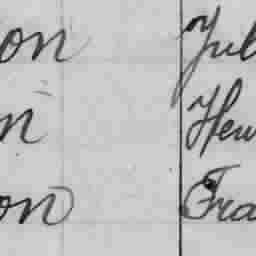 on Jul
n Hen
on Fra